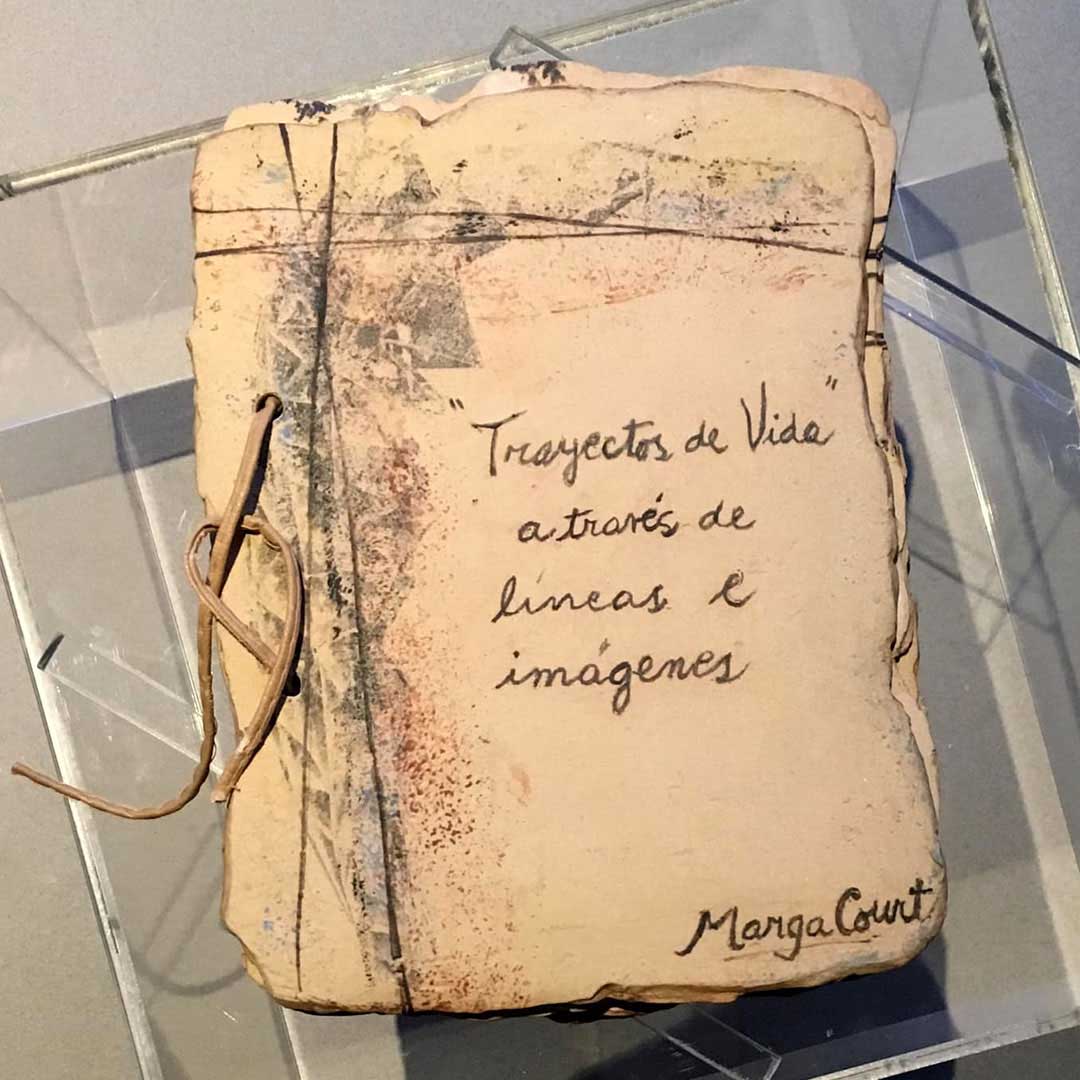 "Trayectos de Vida"
a través de
líneas e
imágenes
Marga Court